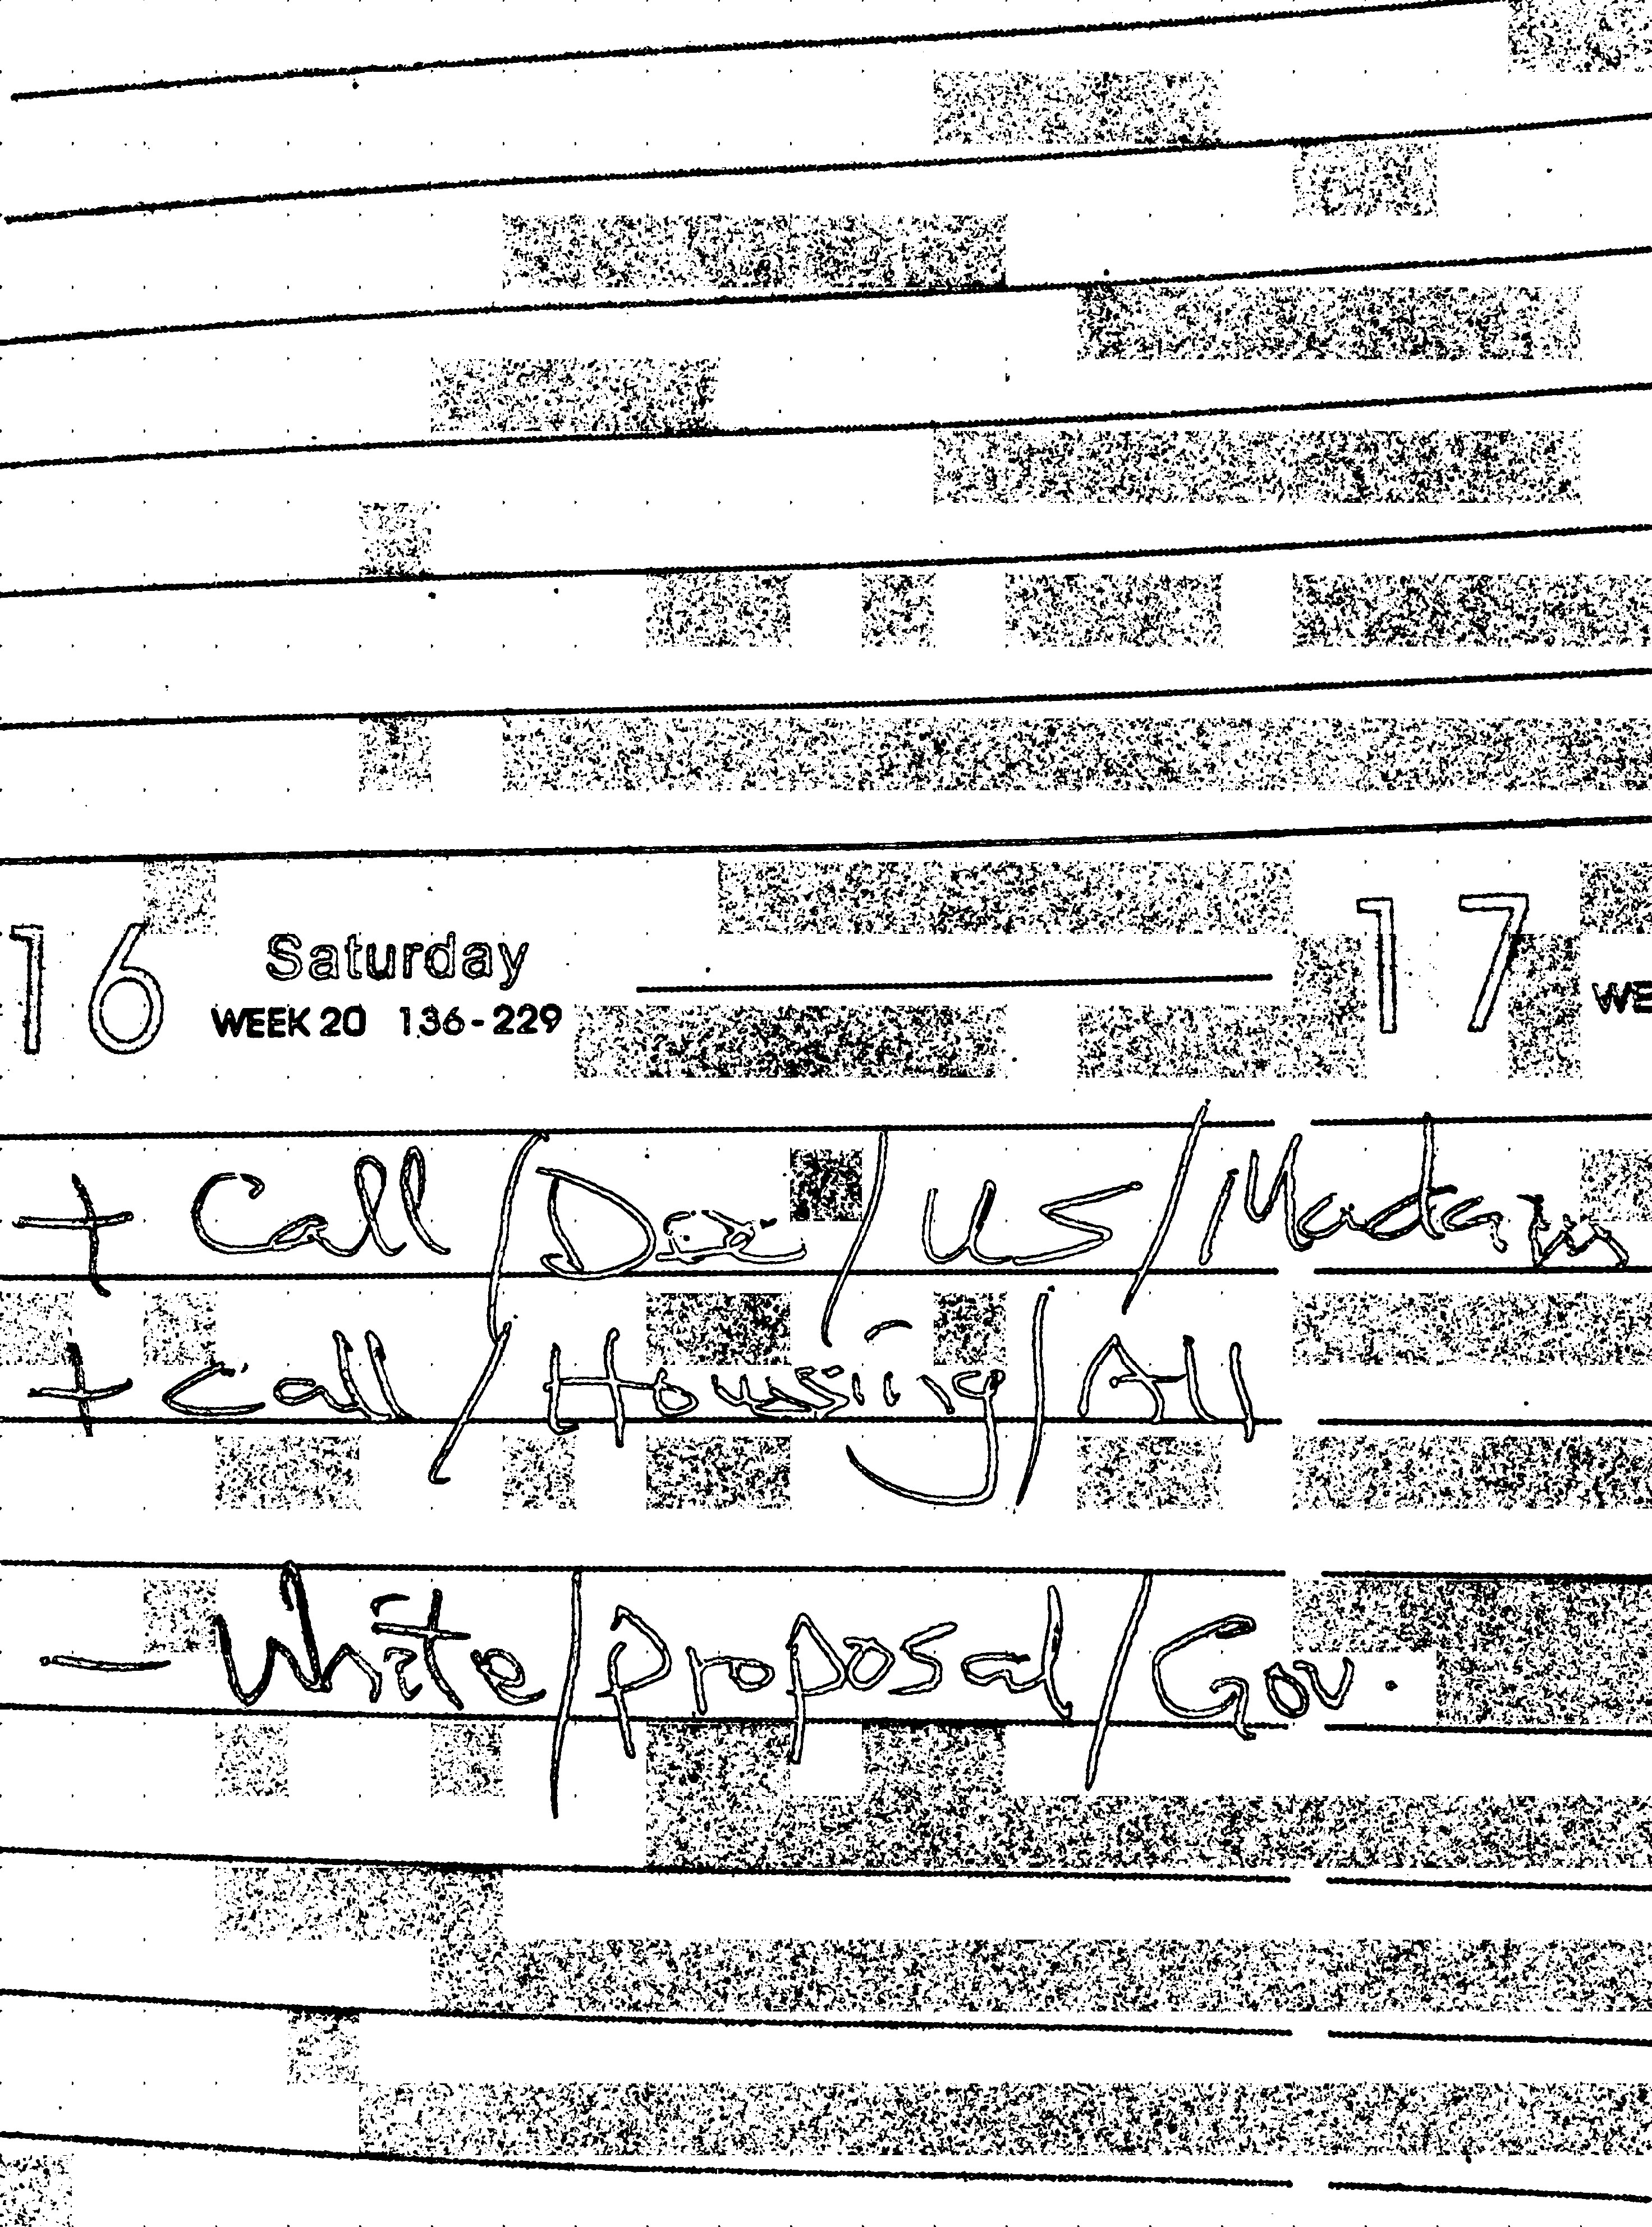 16 Saturday 17
WEEK 20 136-229 WE
+ Call / / US / Madam
+ Call / Housing / All
- White / proposal / Gov.